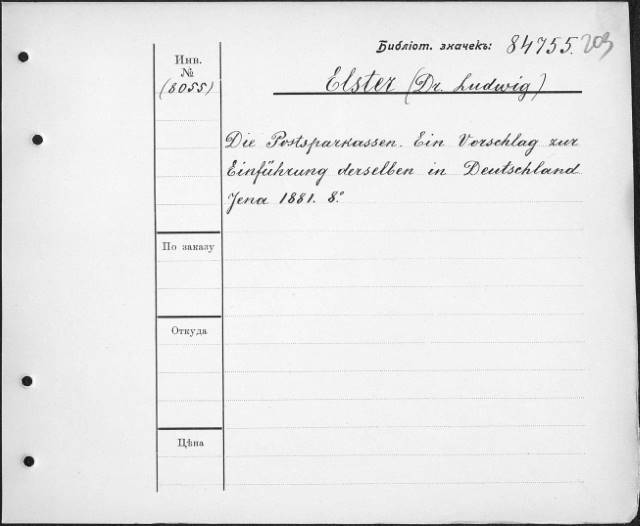 Библіот. значекъ: 84755. 203
Инв.
№
(8055)
Elster (Dr. Ludwig)
Die Postsparkassen. Ein Vorschlag zur
Einführung derselben in Deutschland
Jena 1881. 8.°
По заказу
Откуда
Цѣна